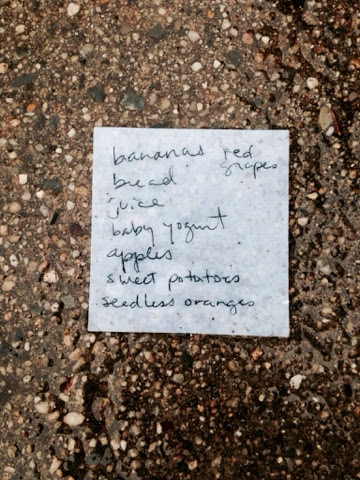 bananas red grapes
bread
juice
baby yogurt
apples
sweet potatoes
seedless oranges